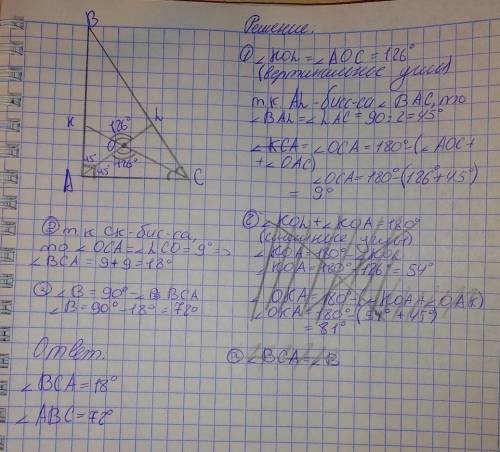 B
K
L
126°
O
126°
45
45
A
C
Решение:
① ∠KOL = ∠AOC = 126°
(вертикальные углы)
т.к. AL - бис-са ∠BAC, то
∠BAL = ∠LAC = 90 : 2 = 45°
∠KCA = ∠OCA = 180° - (∠AOC +
+ ∠OAC)
∠OCA = 180° - (126° + 45°)
= 9°
② т.к CK - бис-са,
то ∠OCA = ∠LCO = 9° =>
∠BCA = 9 + 9 = 18°
③ ∠B = 90° - ∠BCA
∠B = 90° - 18° = 72°
Ответ.
∠BCA = 18°
∠ABC = 72°
② ∠KOL + ∠KOA = 180°
(смежные углы)
∠KOA = 180° - ∠KOL
∠KOA = 180° - 126° = 54°
∠OKA = 180° - (∠KOA + ∠OAK)
∠OKA = 180° - (54° + 45°)
= 81°
③ ∠BCA = ∠B